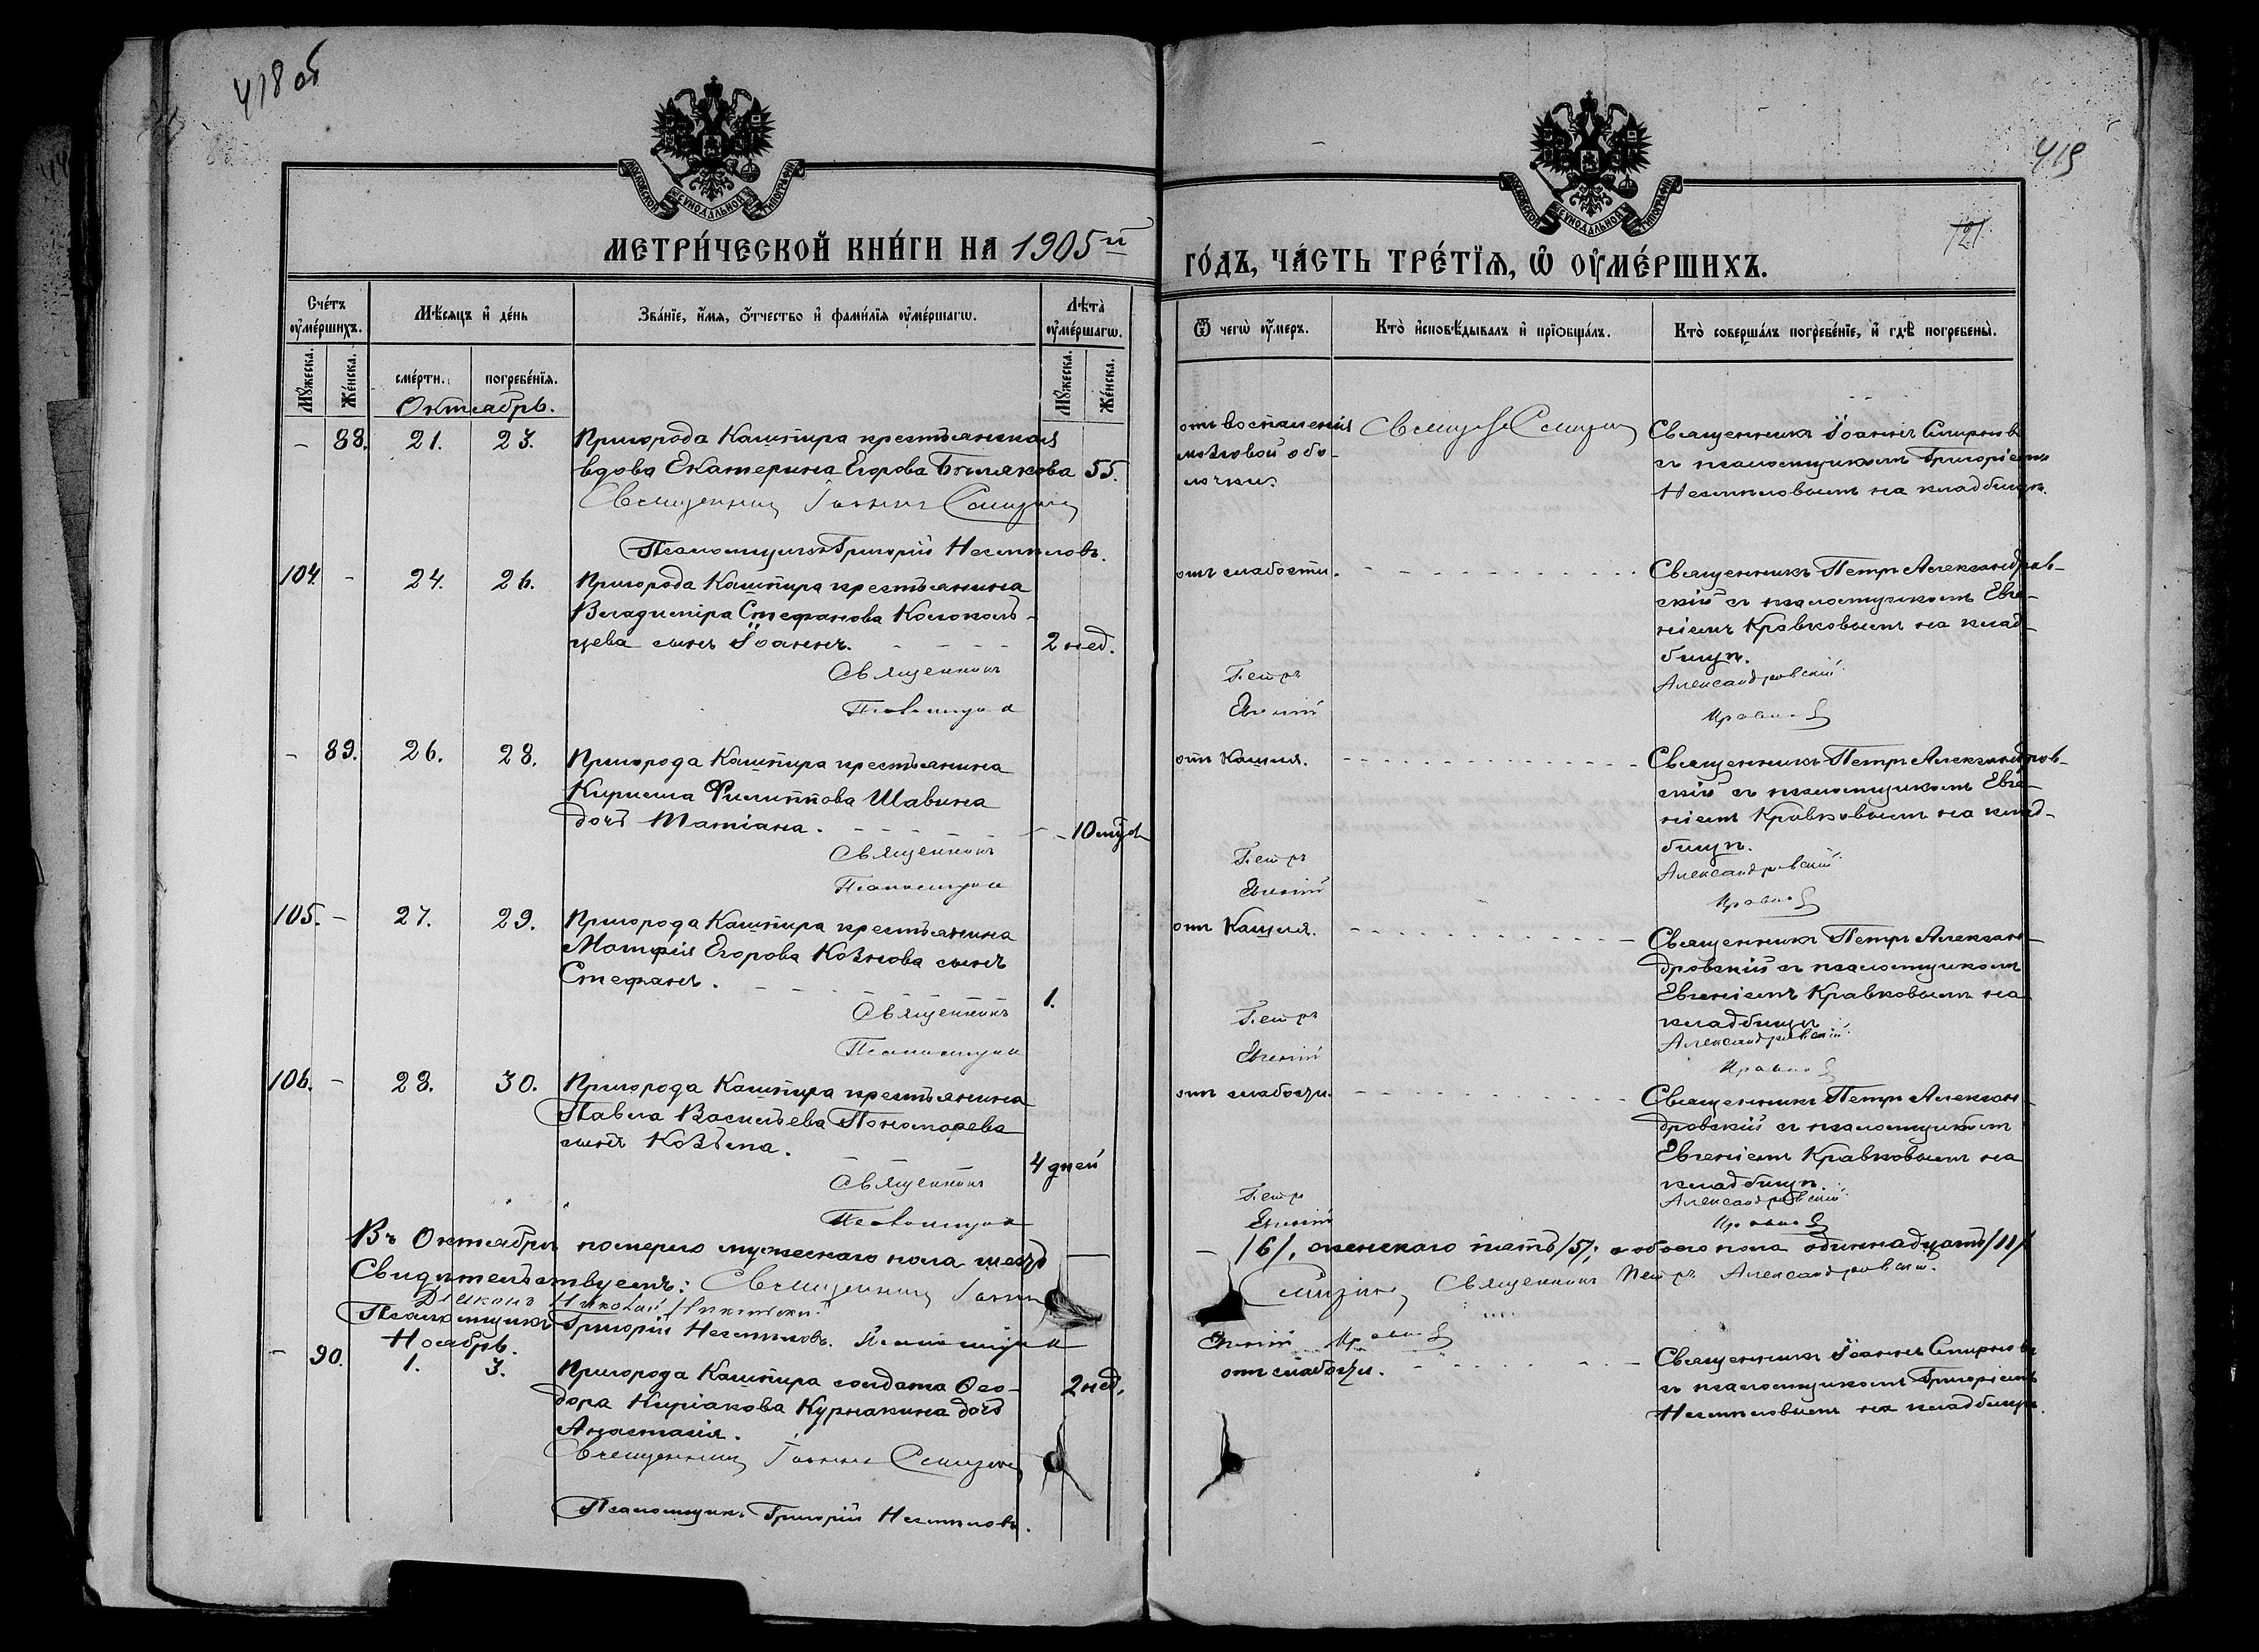 418 об
419
121
МОСКОВСКОЙ СѴНОДАЛЬНОЙ ТИПОГРАФІИ
МОСКОВСКОЙ СѴНОДАЛЬНОЙ ТИПОГРАФІИ
МЕТРИ́ЧЕСКОЙ КНИ́ГИ НА 1905й
ГО́ДЪ, ЧА́СТЬ ТРЕ́ТЇѦ, Ѡ҆ ОУ҆МЕ́РШИХЪ.
Счéтъ
оу҆мéршихъ.
Мѣ́сяцъ и҆ дéнь
Звáнїе, и҆́мя, ѻ҆́тчество и҆ фами́лїя оу҆мéршагѡ.
Лѣтà
оу҆мéршагѡ.
Ѿ чегѡ̀ оу҆́меръ.
Ктò и҆сповѣ́дывалъ и҆ прїѡбщáлъ.
Ктò совершáлъ погребéнїе, и҆ гдѣ̀ погребены̀.
Мꙋ́жеска.
Жéнска.
смéрти.
погребéнїя.
Мꙋ́жеска.
Жéнска.
Октябрь.
– 88. 21. 23. Пригорода Кашпира крестьянская
вдова Екатерина Егорова Бѣлякова 55.
Священникъ Іоаннъ Смирновъ
Псаломщикъ Григорій Несмѣловъ.
отъ воспаленія
мозговой обо-
лочки.
Священ Смирнов
Священникъ Іоаннъ Смирновъ
съ псаломщикомъ Григоріемъ
Несмѣловымъ на кладбищѣ.
104. – 24. 26. Пригорода Кашпира крестьянина
Владиміра Стефанова Колоколь-
цева сынъ Іоаннъ. 2 нед.
Священникъ
Псаломщик
отъ слабости.
Петръ
Евгеній
Священникъ Петръ Александров-
скій съ псаломщикомъ Евге-
ніемъ Кравковымъ на клад-
бищѣ.
Александровскій.
Кравков
– 89. 26. 28. Пригорода Кашпира крестьянина
Кирилла Филиппова Шавина
дочь Татіана. 10 мѣс.
Священникъ
Псаломщик
отъ кашля.
Петръ
Евгеній
Священникъ Петръ Александров-
скій съ псаломщикомъ Евге-
ніемъ Кравковымъ на клад-
бищѣ.
Александровскій.
Кравков
105. – 27. 29. Пригорода Кашпира крестьянина
Матфія Егорова Козлова сынъ
Стефанъ. 1.
Священникъ
Псаломщик
отъ кашля.
Петръ
Евгеній
Священникъ Петръ Алексан-
дровскій съ псаломщикомъ
Евгеніемъ Кравковымъ на
кладбищѣ
Александровскій.
Кравков
106. – 28. 30. Пригорода Кашпира крестьянина
Павла Васильева Пономарева
сынъ Козьма. 4 дней
Священникъ
Псаломщик
отъ слабости.
Петръ
Евгеній
Священникъ Петръ Алексан-
дровскій съ псаломщикомъ
Евгеніемъ Кравковымъ на
кладбищѣ.
Александровскій.
Кравков
Въ Октябрѣ померло мужескаго пола шесть
– /6/, женскаго пять /5/, а обоего пола одиннадцать /11/.
Свидѣтельствуемъ: Священникъ Іоаннъ
Смирновъ Священникъ Петръ Александровскій.
Діаконъ Николай
Псаломщикъ Григорій Несмѣловъ. Псаломщик
Евгеній Кравков
Ноябрь.
– 90. 1. 3. Пригорода Кашпира солдата Ѳео-
дора Киріакова Курнакина дочь
Анастасія. 2 нед.
Священникъ Іоаннъ Смирновъ
Псаломщикъ Григорій Несмѣловъ.
отъ слабости.
Священникъ Іоаннъ Смирновъ
съ псаломщикомъ Григоріемъ
Несмѣловымъ на кладбищѣ.